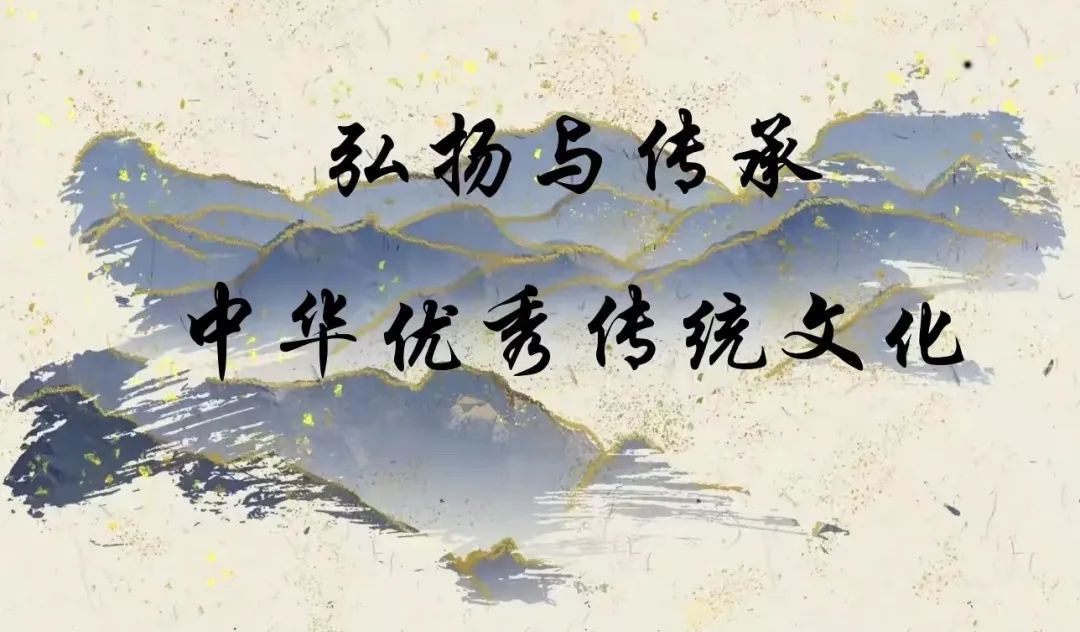 弘扬与传承
中华优秀传统文化